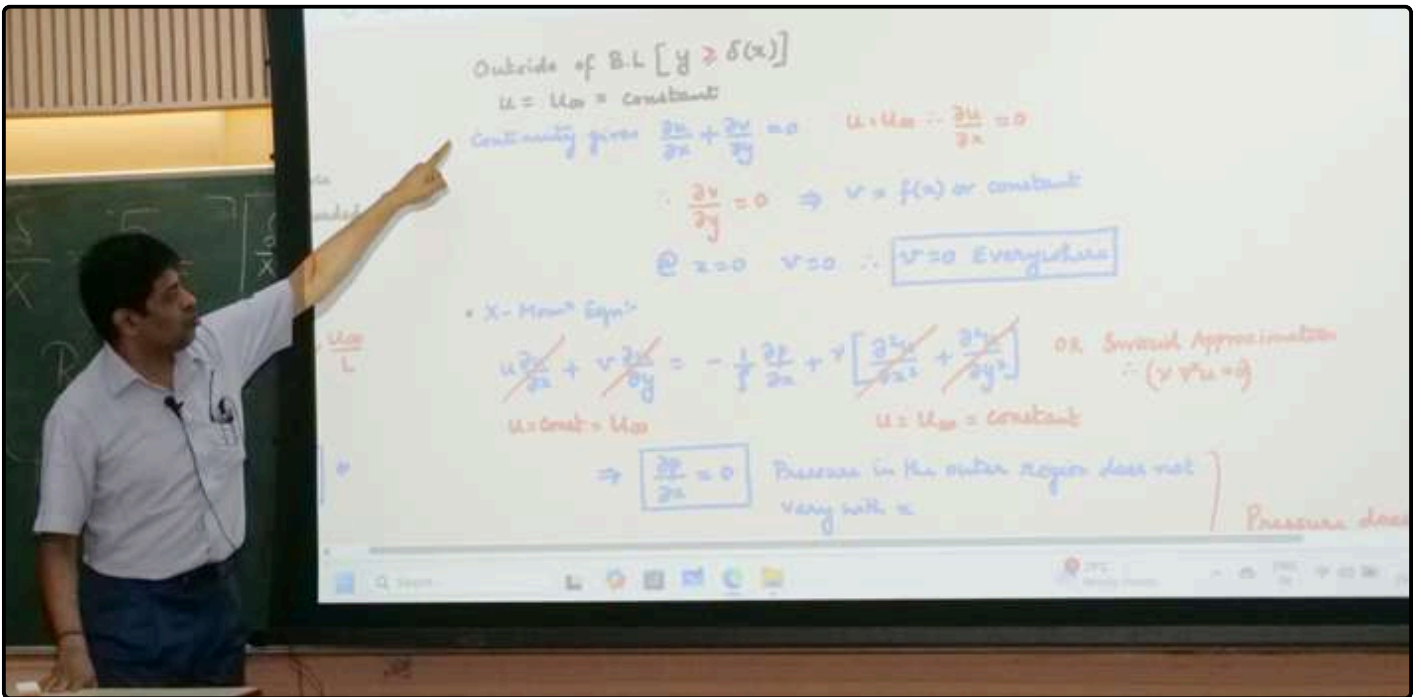 Outside of B.L [y ≥ δ(x)]
u = u∞ = constant
Continuity gives ∂u/∂x + ∂v/∂y = 0 u = u∞ ∴ ∂u/∂x = 0
∴ ∂v/∂y = 0 ⇒ v = f(x) or constant
@ x=0 v=0 ∴ v=0 Everywhere
• X-Momⁿ Eqn:-
u ∂u/∂x + v ∂u/∂y = - 1/ρ ∂p/∂x + ν [∂²u/∂x² + ∂²u/∂y²] OR Inviscid Approximation
∴ (ν ∇²u = 0)
u = const = u∞ u = u∞ = constant
⇒ ∂p/∂x = 0 Pressure in the outer region does not
vary with x
Pressure does
u∞/L
Search